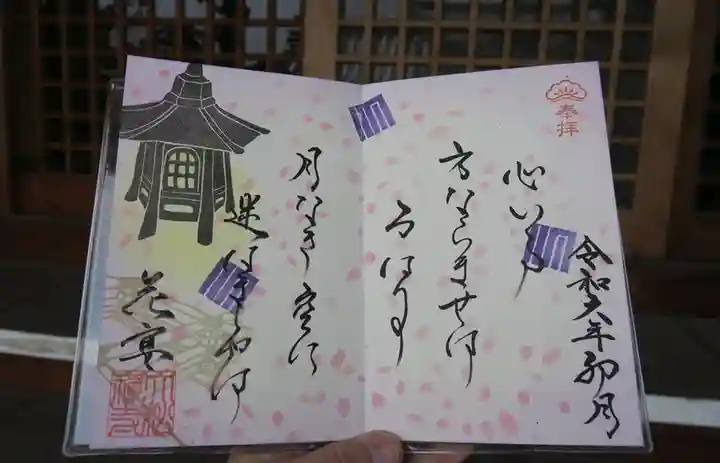 奉拝
令和六年卯月
心いる
方ならませは
弓はりの
月なき空に
迷はましやは
花宴